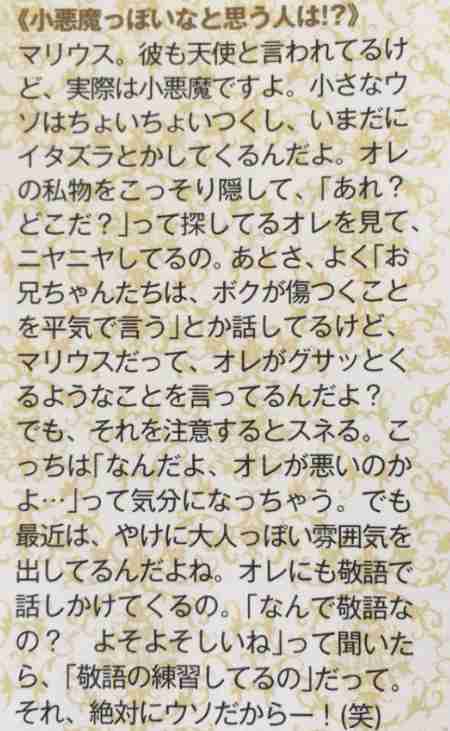 《小悪魔っぽいなと思う人は!?》
マリウス。彼も天使と言われてるけ
ど、実際は小悪魔ですよ。小さなウ
ソはちょいちょいつくし、いまだに
イタズラとかしてくるんだよ。オレ
の私物をこっそり隠して、「あれ？
どこだ？」って探してるオレを見て、
ニヤニヤしてるの。あとさ、よく「お
兄ちゃんたちは、ボクが傷つくこと
を平気で言う」とか話してるけど、
マリウスだって、オレがグサッとく
るようなことを言ってるんだよ？
でも、それを注意するとスネる。こ
っちは「なんだよ、オレが悪いのか
よ…」って気分になっちゃう。でも
最近は、やけに大人っぽい雰囲気を
出してるんだよね。オレにも敬語で
話しかけてくるの。「なんで敬語な
の？　よそよそしいね」って聞いた
ら、「敬語の練習してるの」だって。
それ、絶対にウソだからー！(笑)